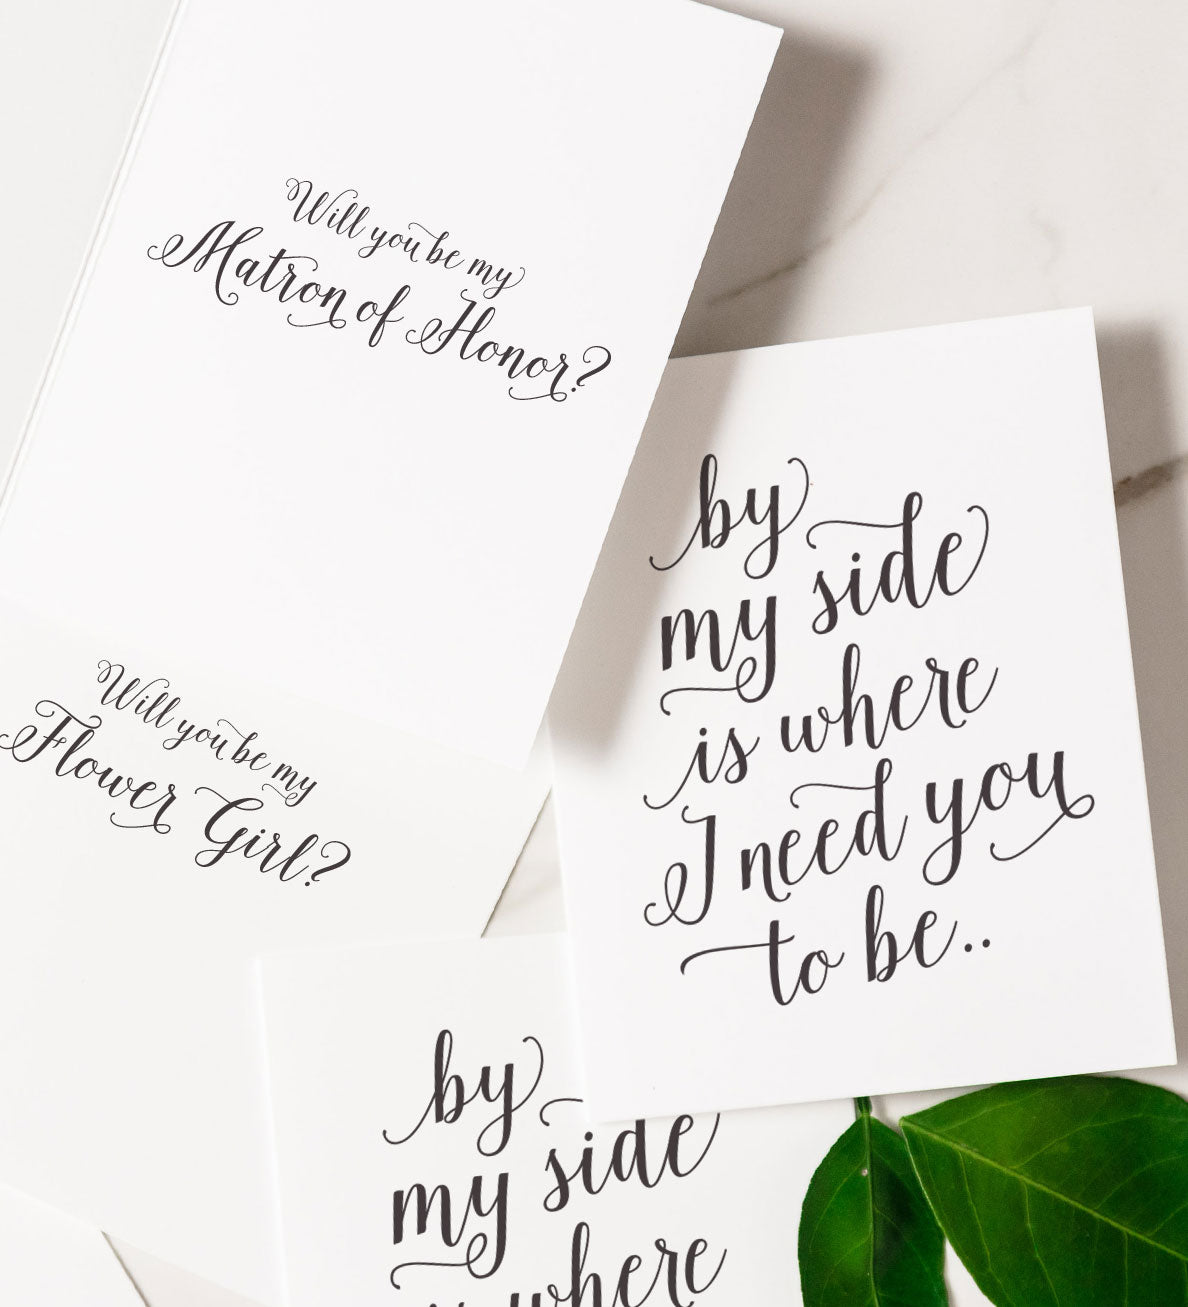 Will you be my
Matron of Honor?
by
my side
is where
I need you
to be..
Will you be my
Flower Girl?
by
my side
is where